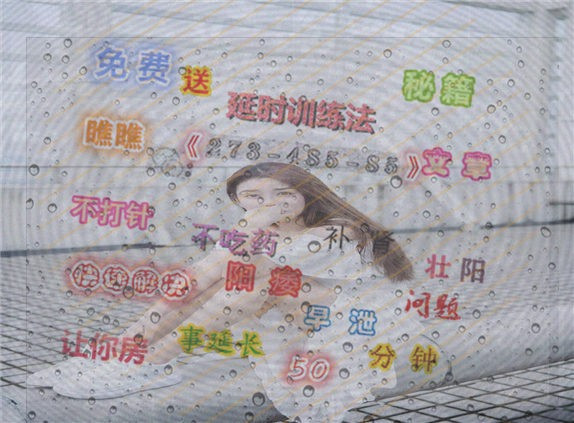 免费送 秘籍
延时训练法
瞧瞧《273-485-85》文章
不打针 不吃药 补肾 壮阳
快速解决 阳痿 早泄 问题
让你房事延长 50 分钟